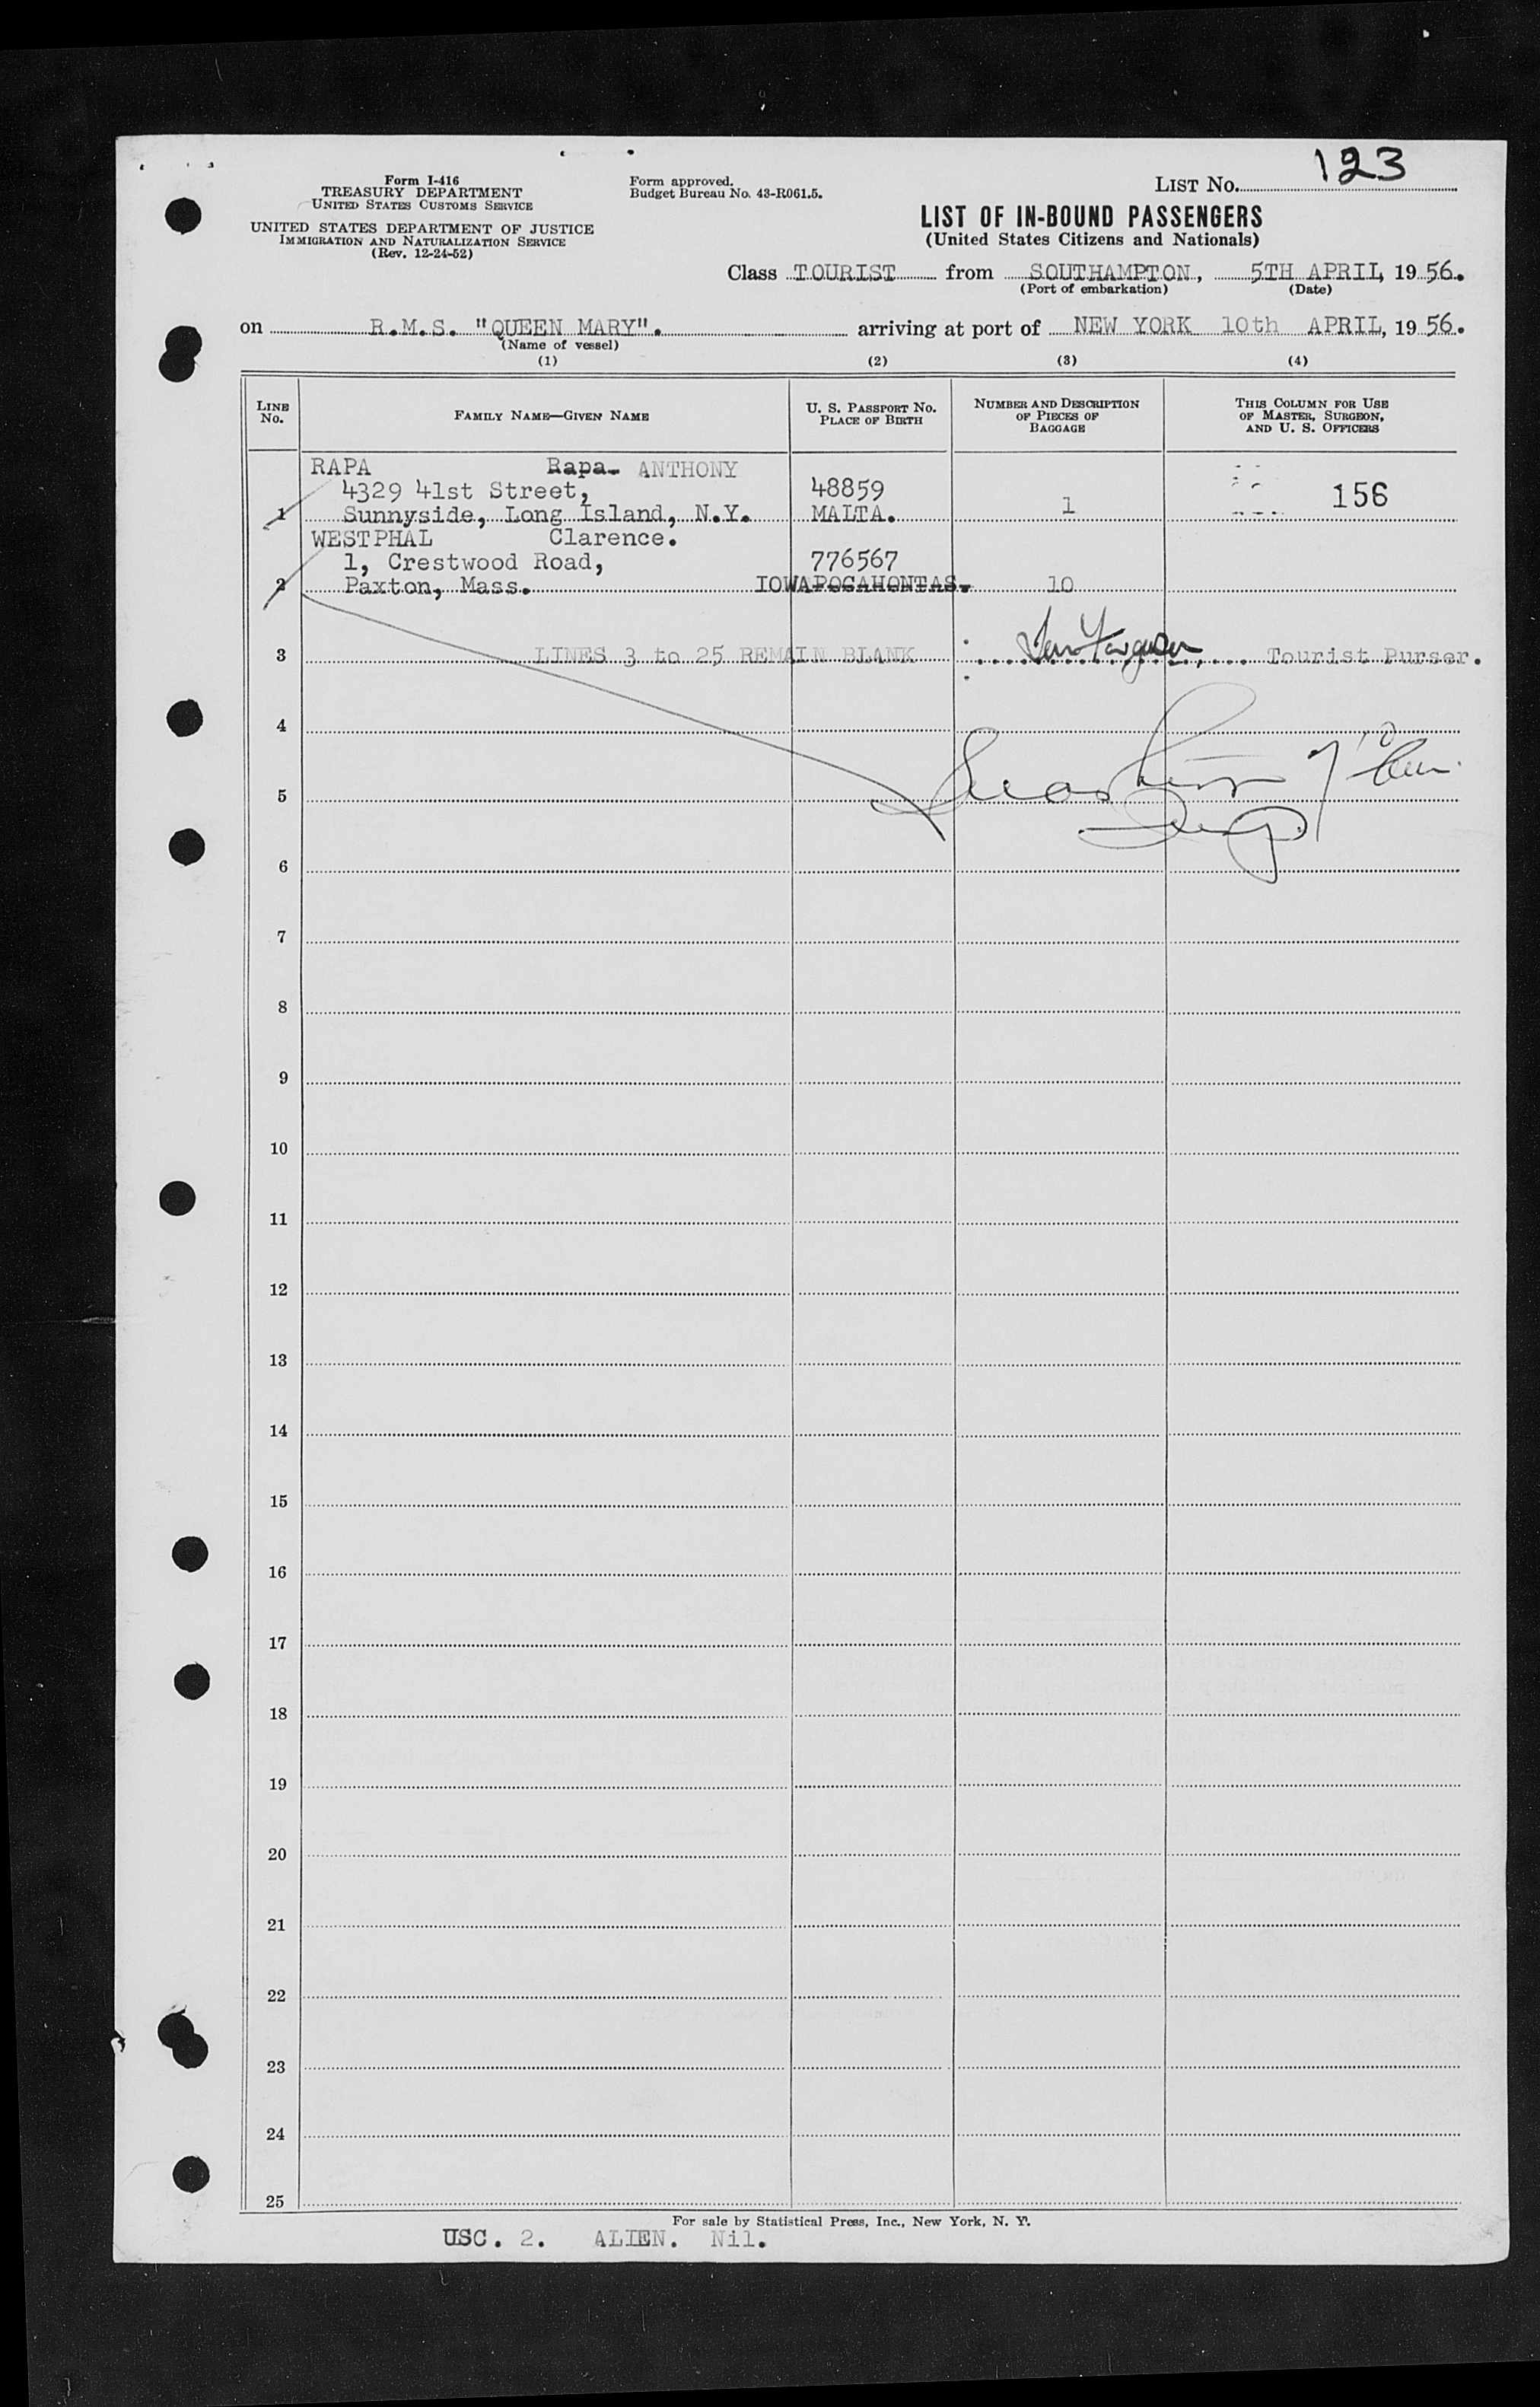 123
Form I-416
TREASURY DEPARTMENT
UNITED STATES CUSTOMS SERVICE
UNITED STATES DEPARTMENT OF JUSTICE
IMMIGRATION AND NATURALIZATION SERVICE
(Rev. 12-24-52)
Form approved.
Budget Bureau No. 43-R061.5.
LIST NO.
LIST OF IN-BOUND PASSENGERS
(United States Citizens and Nationals)
Class TOURIST from SOUTHAMPTON, 5TH APRIL, 1956.
(Port of embarkation) (Date)
on R.M.S. "QUEEN MARY". arriving at port of NEW YORK 10th APRIL, 1956.
(Name of vessel)
(1) (2) (3) (4)
LINE NO. FAMILY NAME—GIVEN NAME U. S. PASSPORT NO. PLACE OF BIRTH NUMBER AND DESCRIPTION OF PIECES OF BAGGAGE THIS COLUMN FOR USE OF MASTER, SURGEON, AND U. S. OFFICERS
RAPA Rapa. ANTHONY
4329 41st Street, 48859 156
1 Sunnyside, Long Island, N.Y. MALTA. 1
WESTPHAL Clarence.
1, Crestwood Road, 776567
2 Paxton, Mass. IOWA POCAHONTAS. 10
3 LINES 3 to 25 REMAIN BLANK Tourist Purser.
4
5
6
7
8
9
10
11
12
13
14
15
16
17
18
19
20
21
22
23
24
25
For sale by Statistical Press, Inc., New York, N. Y.
USC. 2. ALIEN. Nil.